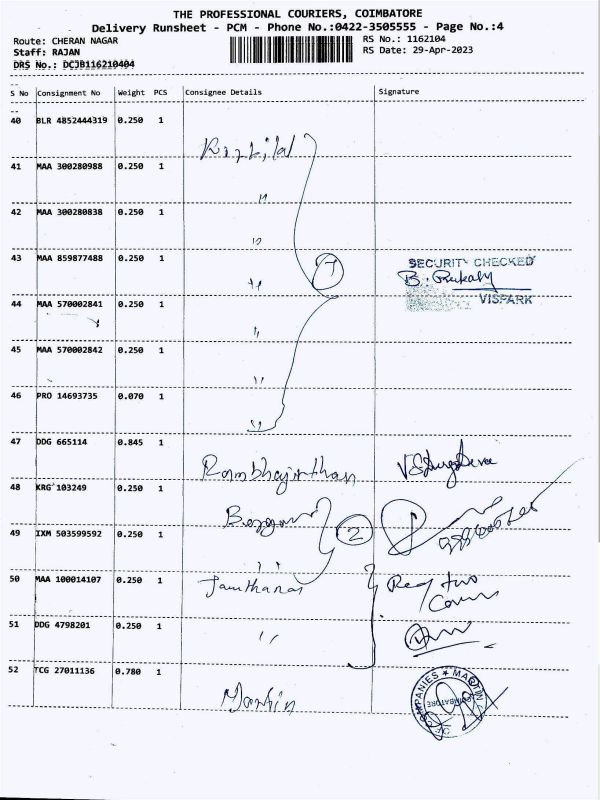 THE PROFESSIONAL COURIERS, COIMBATORE
Delivery Runsheet - PCM - Phone No.:0422-3505555 - Page No.:4
Route: CHERAN NAGAR
RS No.: 1162104
Staff: RAJAN
RS Date: 29-Apr-2023
DRS No.: DCJB116210404
S No Consignment No Weight PCS Consignee Details Signature
40 BLR 4852444319 0.250 1
41 MAA 300280988 0.250 1
"
42 MAA 300280838 0.250 1
"
43 MAA 859877488 0.250 1
7
SECURITY CHECKED
B.
VISPARK
"
44 MAA 570002841 0.250 1
"
45 MAA 570002842 0.250 1
"
46 PRO 14693735 0.070 1
"
47 DDG 665114 0.845 1
48 KRG 103249 0.250 1
49 IXM 503599592 0.250 1
2
"
50 MAA 100014107 0.250 1
two
51 DDG 4798201 0.250 1
"
52 TCG 27011136 0.780 1
Martin
COMPANIES ★ MARTIN
COIMBATORE